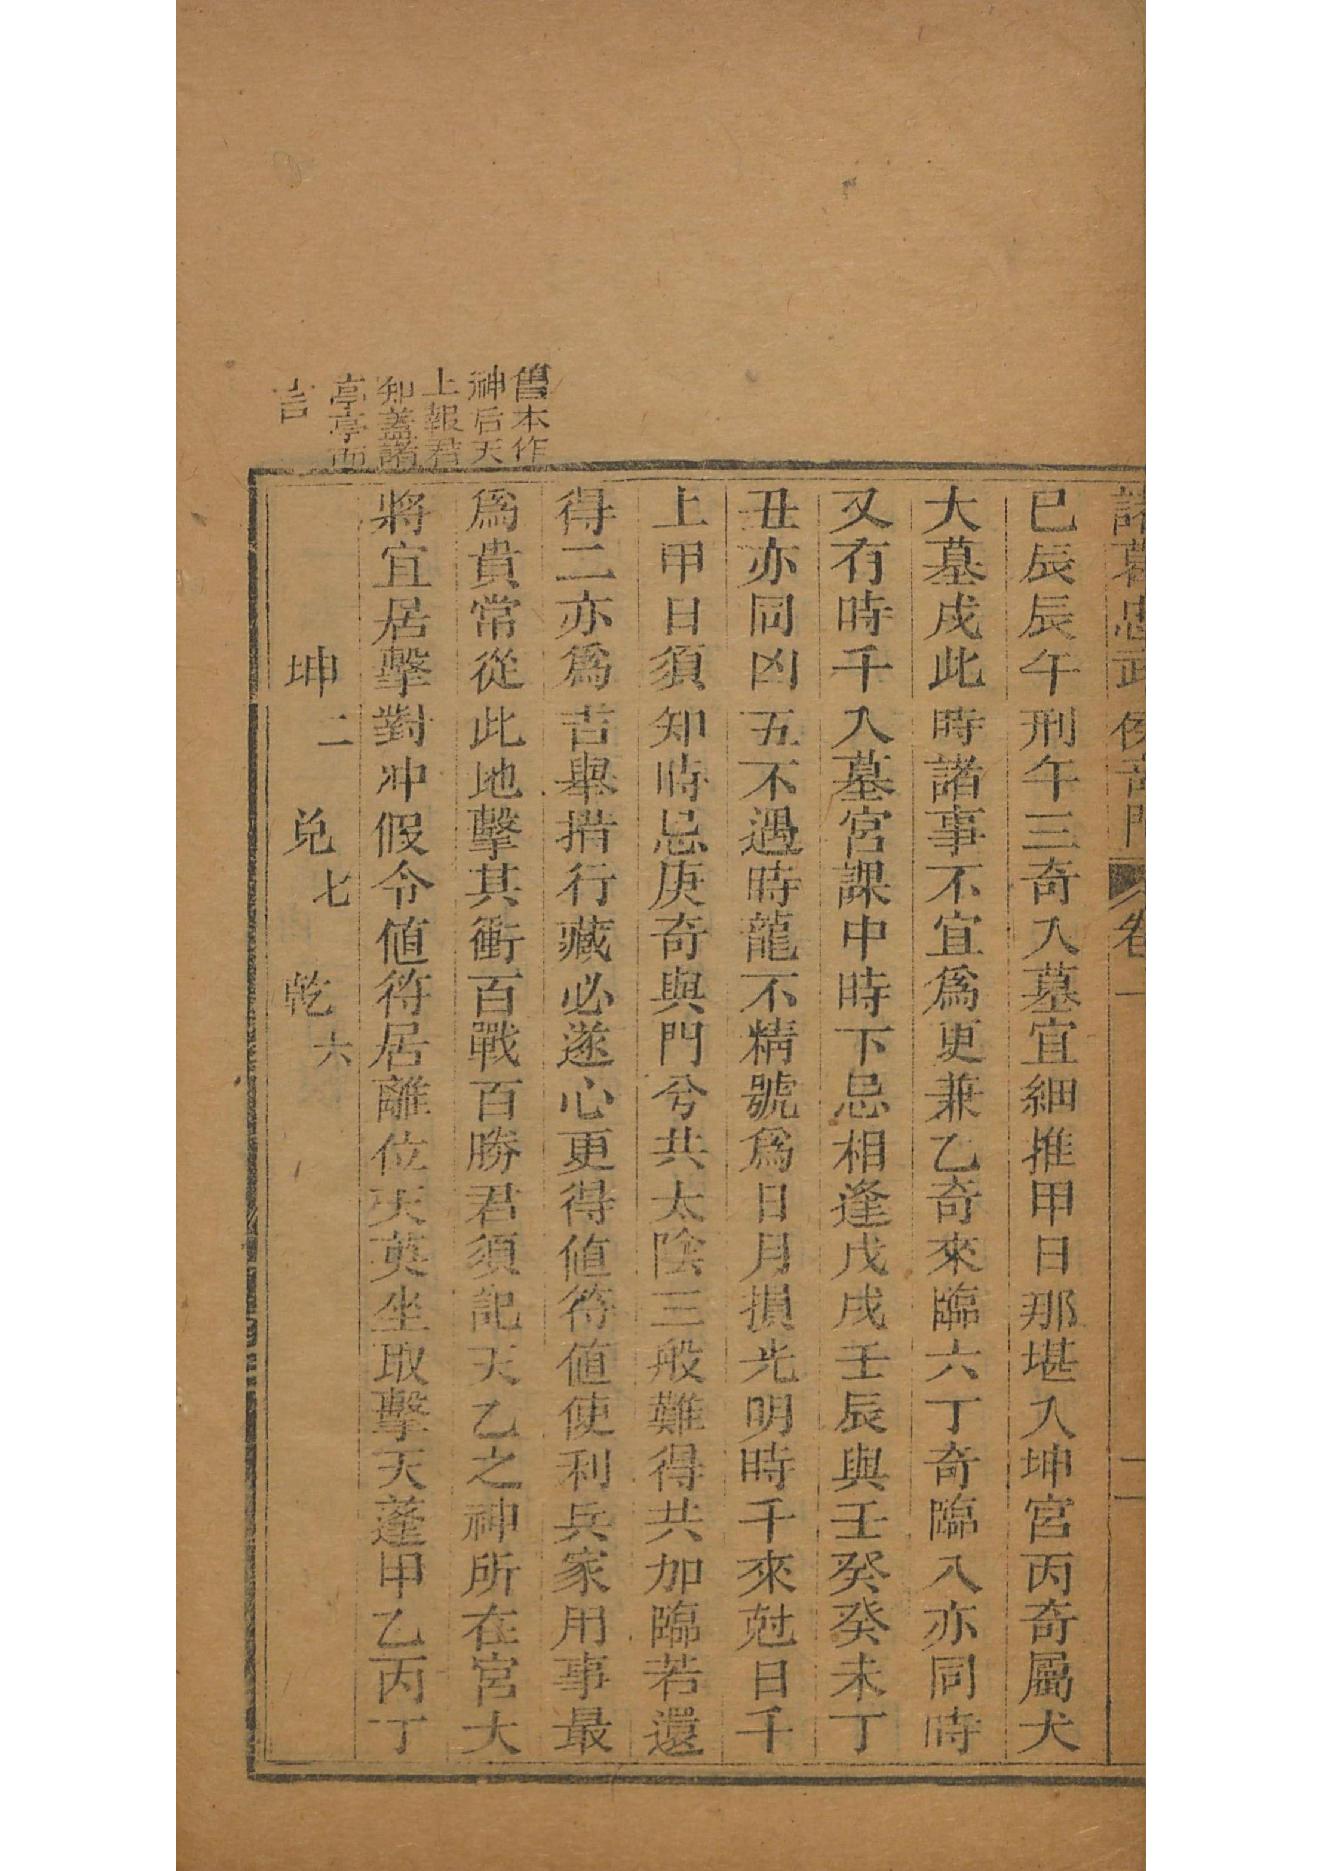 諸葛忠武侯奇門 卷一 二
巳辰辰午刑午三奇入墓宜細推甲日那堪入坤宮丙奇屬火
大墓戌此時諸事不宜爲更兼乙奇來臨六丁奇臨八亦同時
又有時千入墓宮課中時下忌相逢戊戌壬辰與壬癸癸未丁
丑亦同凶五不遇時龍不精號爲日月損光明時千來尅日千
上甲日須知時忌庚奇與門兮共太陰三般難得共加臨若還
得二亦爲吉舉措行藏必遂心更得値符値使利兵家用事最
爲貴常從此地擊其衝百戰百勝君須記天乙之神所在宮大
將宜居擊對冲假令値符居離位天英坐取擊天蓬甲乙丙丁
坤二 兌七 乾六
舊本作
神后天
上報君
知蓋諸
亭亭而
言